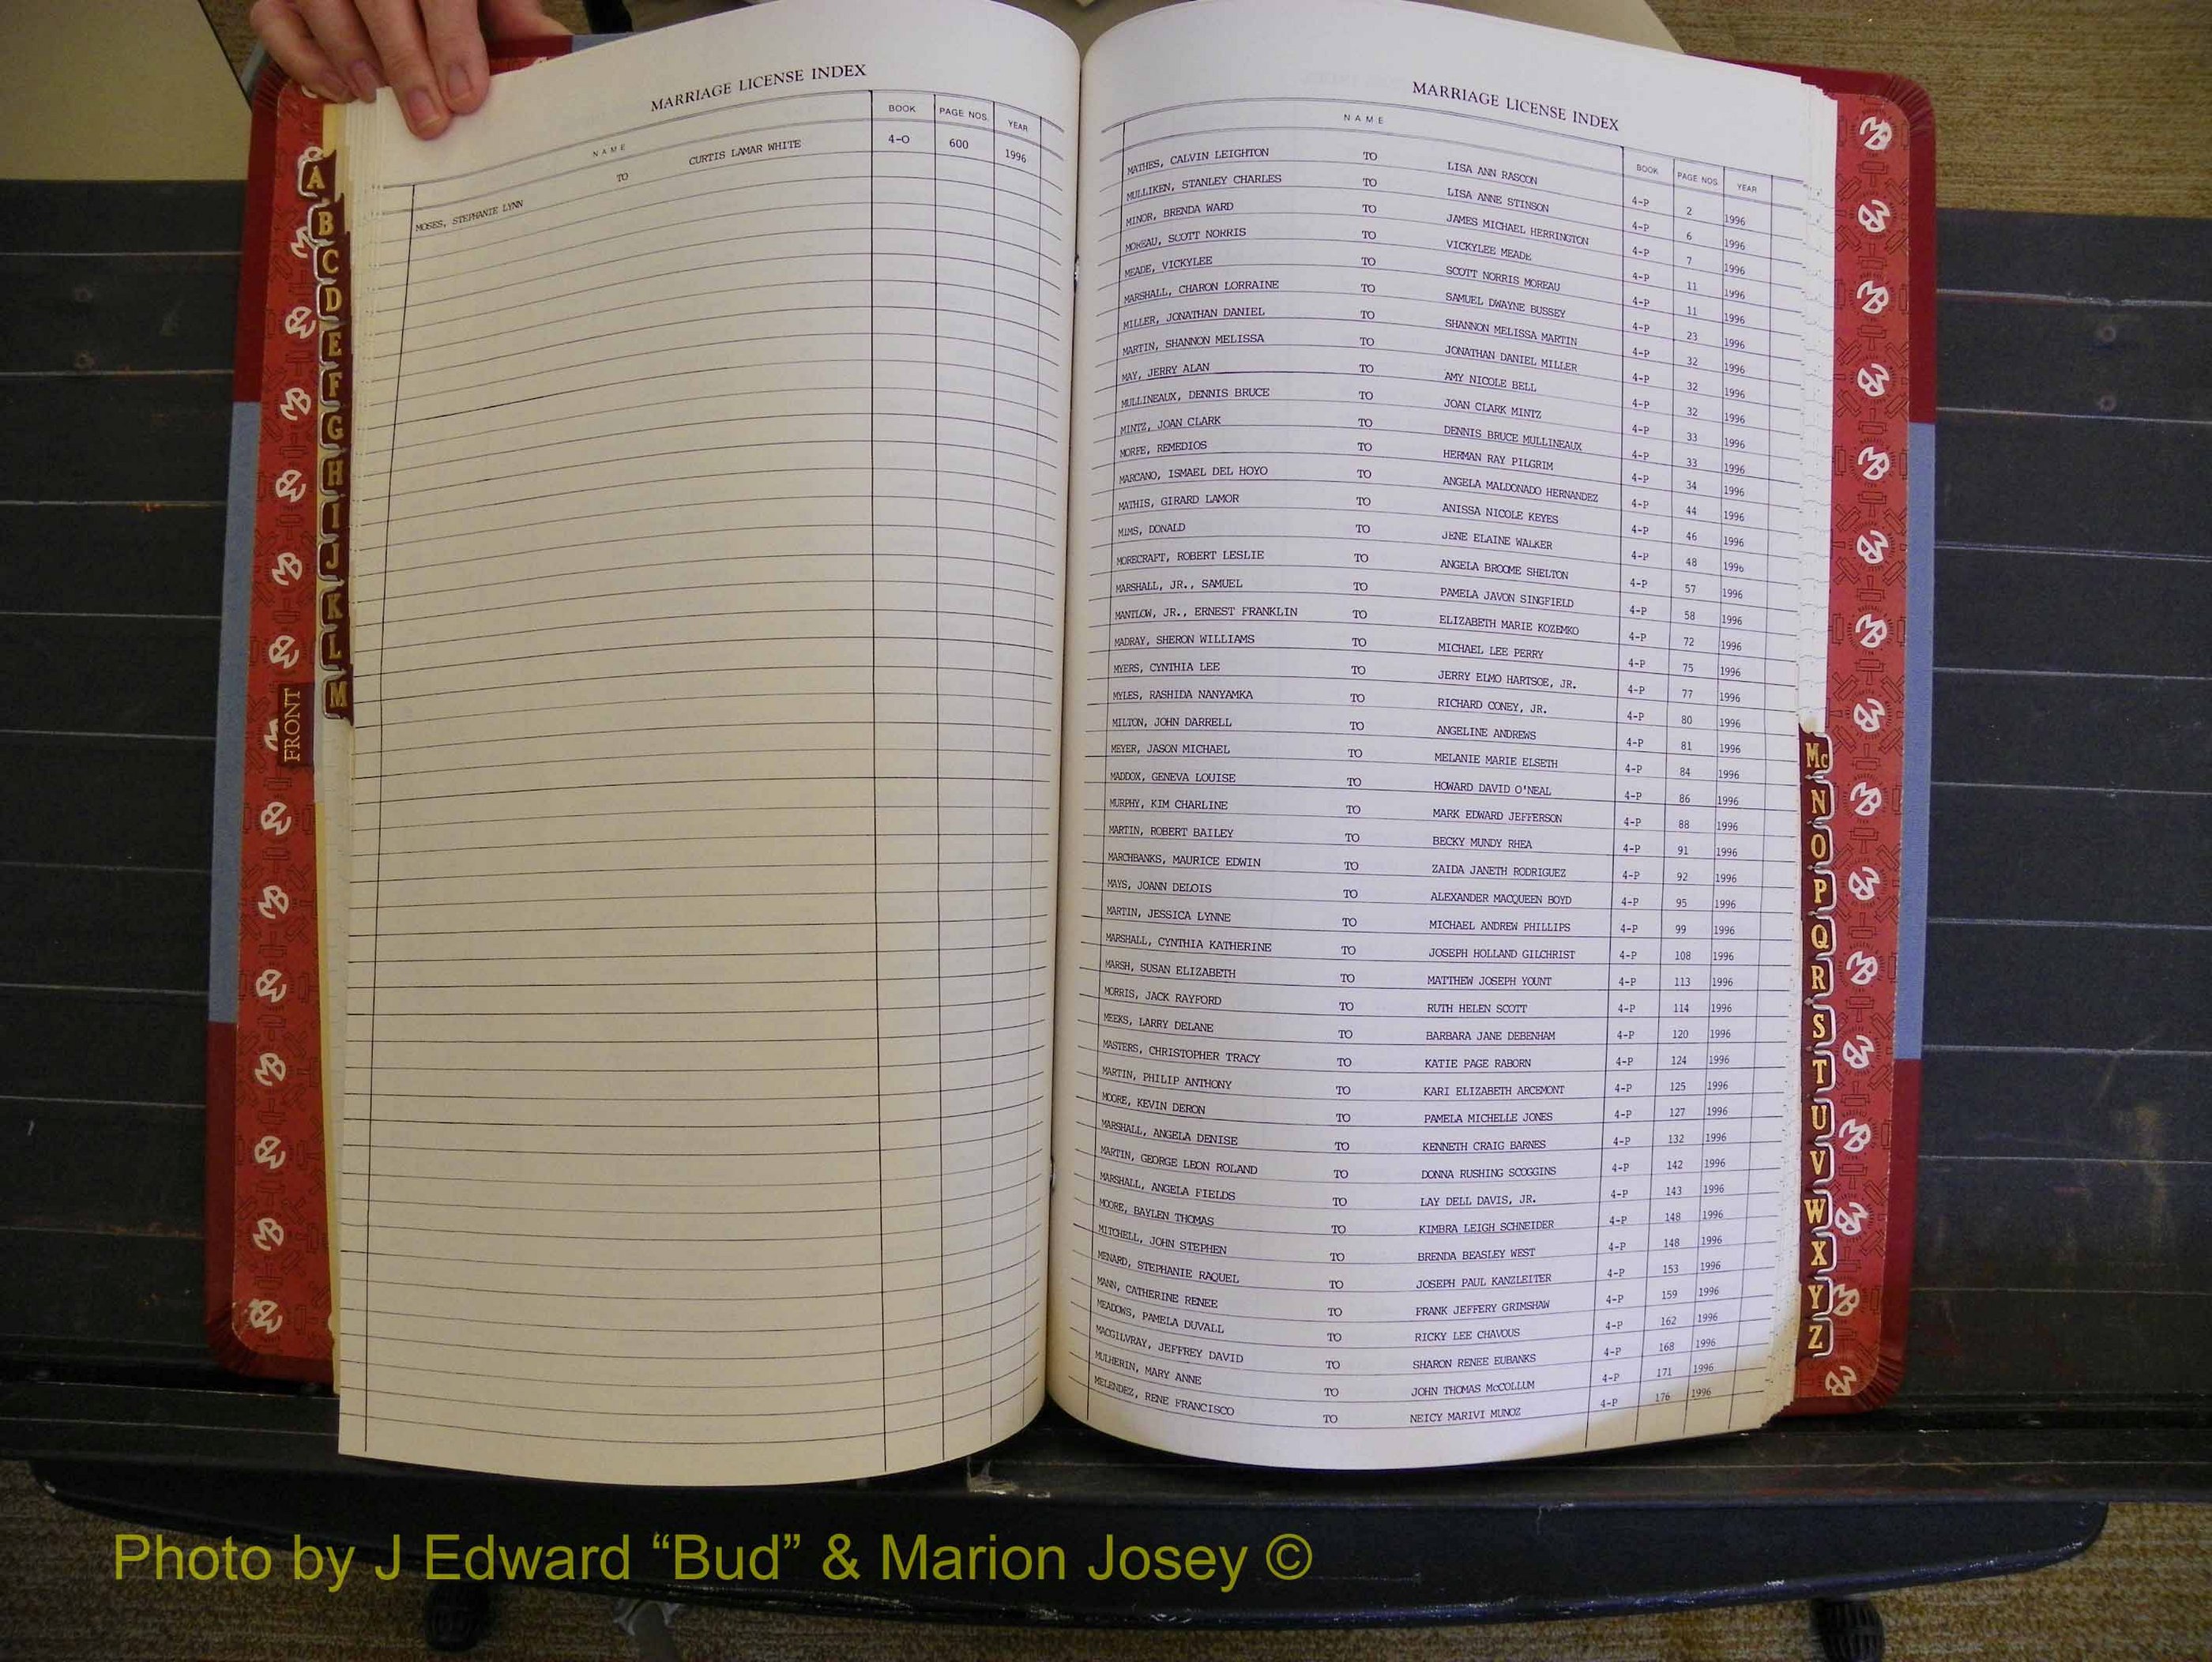 MARRIAGE LICENSE INDEX
NAME BOOK PAGE NOS. YEAR
MOSES, STEPHANIE LYNN TO CURTIS LAMAR WHITE 4-O 600 1996
A
B
C
D
E
F
G
H
I
J
K
L
M
FRONT
MARRIAGE LICENSE INDEX
NAME BOOK PAGE NOS. YEAR
MATHES, CALVIN LEIGHTON TO LISA ANN RASCON 4-P 2 1996
MULLIKEN, STANLEY CHARLES TO LISA ANNE STINSON 4-P 6 1996
MINOR, BRENDA WARD TO JAMES MICHAEL HERRINGTON 4-P 7 1996
MOREAU, SCOTT NORRIS TO VICKYLEE MEADE 4-P 11 1996
MEADE, VICKYLEE TO SCOTT NORRIS MOREAU 4-P 11 1996
MARSHALL, CHARON LORRAINE TO SAMUEL DWAYNE BUSSEY 4-P 23 1996
MILLER, JONATHAN DANIEL TO SHANNON MELISSA MARTIN 4-P 32 1996
MARTIN, SHANNON MELISSA TO JONATHAN DANIEL MILLER 4-P 32 1996
MAY, JERRY ALAN TO AMY NICOLE BELL 4-P 32 1996
MULLINEAUX, DENNIS BRUCE TO JOAN CLARK MINTZ 4-P 33 1996
MINTZ, JOAN CLARK TO DENNIS BRUCE MULLINEAUX 4-P 33 1996
MORFE, REMEDIOS TO HERMAN RAY PILGRIM 4-P 34 1996
MARCANO, ISMAEL DEL HOYO TO ANGELA MALDONADO HERNANDEZ 4-P 44 1996
MATHIS, GIRARD LAMOR TO ANISSA NICOLE KEYES 4-P 46 1996
MIMS, DONALD TO JENE ELAINE WALKER 4-P 48 1996
MORECRAFT, ROBERT LESLIE TO ANGELA BROOME SHELTON 4-P 57 1996
MARSHALL, JR., SAMUEL TO PAMELA JAVON SINGFIELD 4-P 58 1996
MANTLOW, JR., ERNEST FRANKLIN TO ELIZABETH MARIE KOZEMKO 4-P 72 1996
MADRAY, SHERON WILLIAMS TO MICHAEL LEE PERRY 4-P 75 1996
MYERS, CYNTHIA LEE TO JERRY ELMO HARTSOE, JR. 4-P 77 1996
MYLES, RASHIDA NANYAMKA TO RICHARD CONEY, JR. 4-P 80 1996
MILTON, JOHN DARRELL TO ANGELINE ANDREWS 4-P 81 1996
MEYER, JASON MICHAEL TO MELANIE MARIE ELSETH 4-P 84 1996
MADDOX, GENEVA LOUISE TO HOWARD DAVID O'NEAL 4-P 86 1996
MURPHY, KIM CHARLINE TO MARK EDWARD JEFFERSON 4-P 88 1996
MARTIN, ROBERT BAILEY TO BECKY MUNDY RHEA 4-P 91 1996
MARCHBANKS, MAURICE EDWIN TO ZAIDA JANETH RODRIGUEZ 4-P 92 1996
MAYS, JOANN DELOIS TO ALEXANDER MACQUEEN BOYD 4-P 95 1996
MARTIN, JESSICA LYNNE TO MICHAEL ANDREW PHILLIPS 4-P 99 1996
MARSHALL, CYNTHIA KATHERINE TO JOSEPH HOLLAND GILCHRIST 4-P 108 1996
MARSH, SUSAN ELIZABETH TO MATTHEW JOSEPH YOUNT 4-P 113 1996
MORRIS, JACK RAYFORD TO RUTH HELEN SCOTT 4-P 114 1996
MEEKS, LARRY DELANE TO BARBARA JANE DEBENHAM 4-P 120 1996
MASTERS, CHRISTOPHER TRACY TO KATIE PAGE RABORN 4-P 124 1996
MARTIN, PHILIP ANTHONY TO KARI ELIZABETH ARCEMONT 4-P 125 1996
MOORE, KEVIN DERON TO PAMELA MICHELLE JONES 4-P 127 1996
MARSHALL, ANGELA DENISE TO KENNETH CRAIG BARNES 4-P 132 1996
MARTIN, GEORGE LEON ROLAND TO DONNA RUSHING SCOGGINS 4-P 142 1996
MARSHALL, ANGELA FIELDS TO LAY DELL DAVIS, JR. 4-P 143 1996
MOORE, BAYLEN THOMAS TO KIMBRA LEIGH SCHNEIDER 4-P 148 1996
MITCHELL, JOHN STEPHEN TO BRENDA BEASLEY WEST 4-P 148 1996
MENARD, STEPHANIE RAQUEL TO JOSEPH PAUL KANZLEITER 4-P 153 1996
MANN, CATHERINE RENEE TO FRANK JEFFERY GRIMSHAW 4-P 159 1996
MEADOWS, PAMELA DUVALL TO RICKY LEE CHAVOUS 4-P 162 1996
MACGILVRAY, JEFFREY DAVID TO SHARON RENEE EUBANKS 4-P 168 1996
MULHERIN, MARY ANNE TO JOHN THOMAS McCOLLUM 4-P 171 1996
MELENDEZ, RENE FRANCISCO TO NEICY MARIVI MUNOZ 4-P 176 1996
Mc
N
O
P
Q
R
S
T
U
V
W
X
Y
Z
Photo by J Edward “Bud” & Marion Josey ©